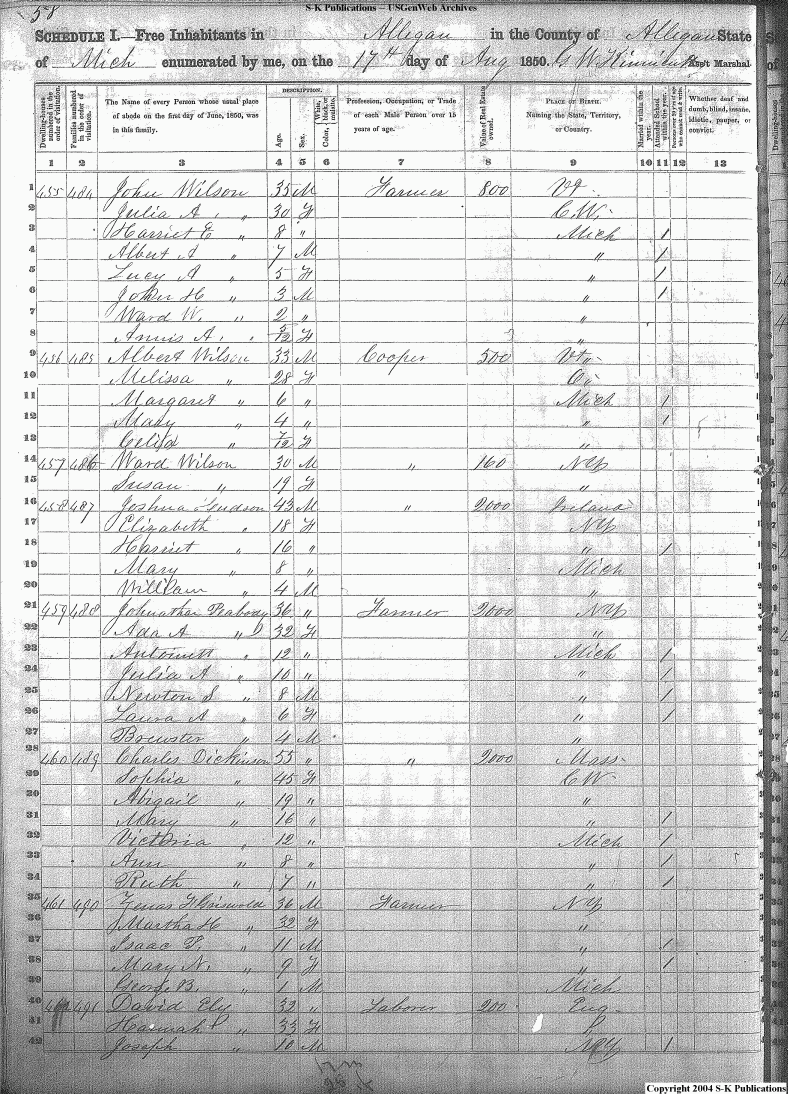 S-K Publications – USGenWeb Archives
58
SCHEDULE I.—Free Inhabitants in Allegan in the County of Allegan State
of Mich enumerated by me, on the 17th day of Aug 1850. G W Ass't Marshal.
Dwelling-houses numbered in the order of visitation. Families numbered in the order of visitation. The Name of every Person whose usual place of abode on the first day of June, 1850, was in this family. DESCRIPTION. Age. Sex. White, black, or mulatto. Color, Profession, Occupation, or Trade of each Male Person over 15 years of age. Value of Real Estate owned. PLACE OF BIRTH. Naming the State, Territory, or Country. Married within the year. Attended School within the year. Persons over 20 y'rs of age who cannot read & write. Whether deaf and dumb, blind, insane, idiotic, pauper, or convict.
1 2 3 4 5 6 7 8 9 10 11 12 13
1 455 484 John Wilson 35 M Farmer 800 Vt
2 Julia A " 30 F C.W.
3 Harriet E " 8 " Mich 1
4 Albert A " 7 M " 1
5 Lucy A " 5 F " 1
6 John H " 3 M " 1
7 Ward W. " 2 " "
8 Annis A. " /12 F "
9 456 485 Albert Wilson 33 M Cooper 500 Vt
10 Melissa " 28 F
11 Margaret " 6 " Mich 1
12 Mary " 4 " " 1
13 Celia " 7/12 F "
14 457 486 Ward Wilson 30 M " 160 NY
15 Susan " 19 F "
16 458 487 Joshua 43 M " 2000 Ireland
17 Elizabeth " 18 F NY
18 Harriet " 16 " " 1
19 Mary " 8 " Mich
20 William " 4 M "
21 459 488 Johnathan Peabody 36 " Farmer 2000 NY
22 Ada A " 32 F "
23 Antonett " 12 " Mich 1
24 Julia A " 10 " " 1
25 Newton S " 8 M " 1
26 Laura A " 6 F " 1
27 Brewster " 4 M "
28 460 489 Charles Dickinson 55 " " 2000 Mass
29 Sophia " 45 F C W
30 Abigail " 19 " "
31 Mary " 16 " " 1
32 Victoria " 12 " Mich 1
33 Ann " 8 " " 1
34 Ruth " 7 " " 1
35 461 490 Griswold 36 M Farmer NY
36 Martha H " 32 F "
37 Isaac P. " 11 M " 1
38 Mary N. " 9 F " 1
39 George B. " 1 M Mich
40 491 David Ely 32 " Laborer 200 Eng
41 Hannah " 33 F
42 Joseph " 10 M NY 1
Copyright 2004 S-K Publications